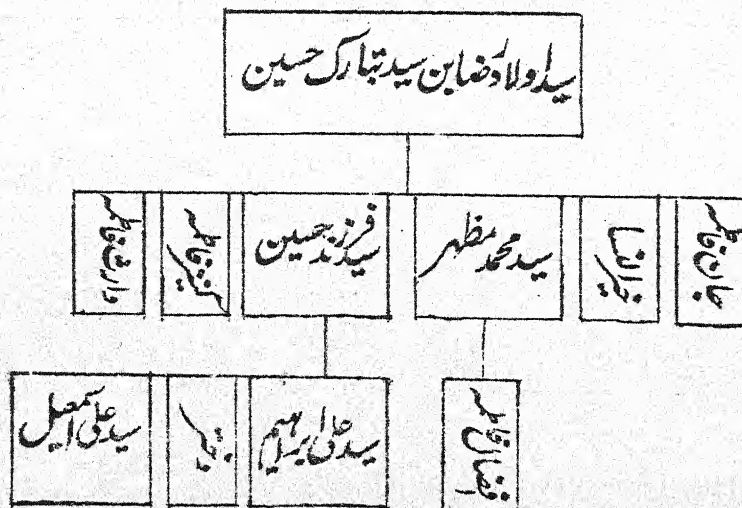 سید اولاد رضا بن سید تبارک حسین
جہان فاطمہ
خیر النسا
سید محمد مظہر
سید فرزند حسین
کنیز فاطمہ
وارث فاطمہ
افضال فاطمہ
سید علی ابراہیم
دختر
سید علی اسمعیل